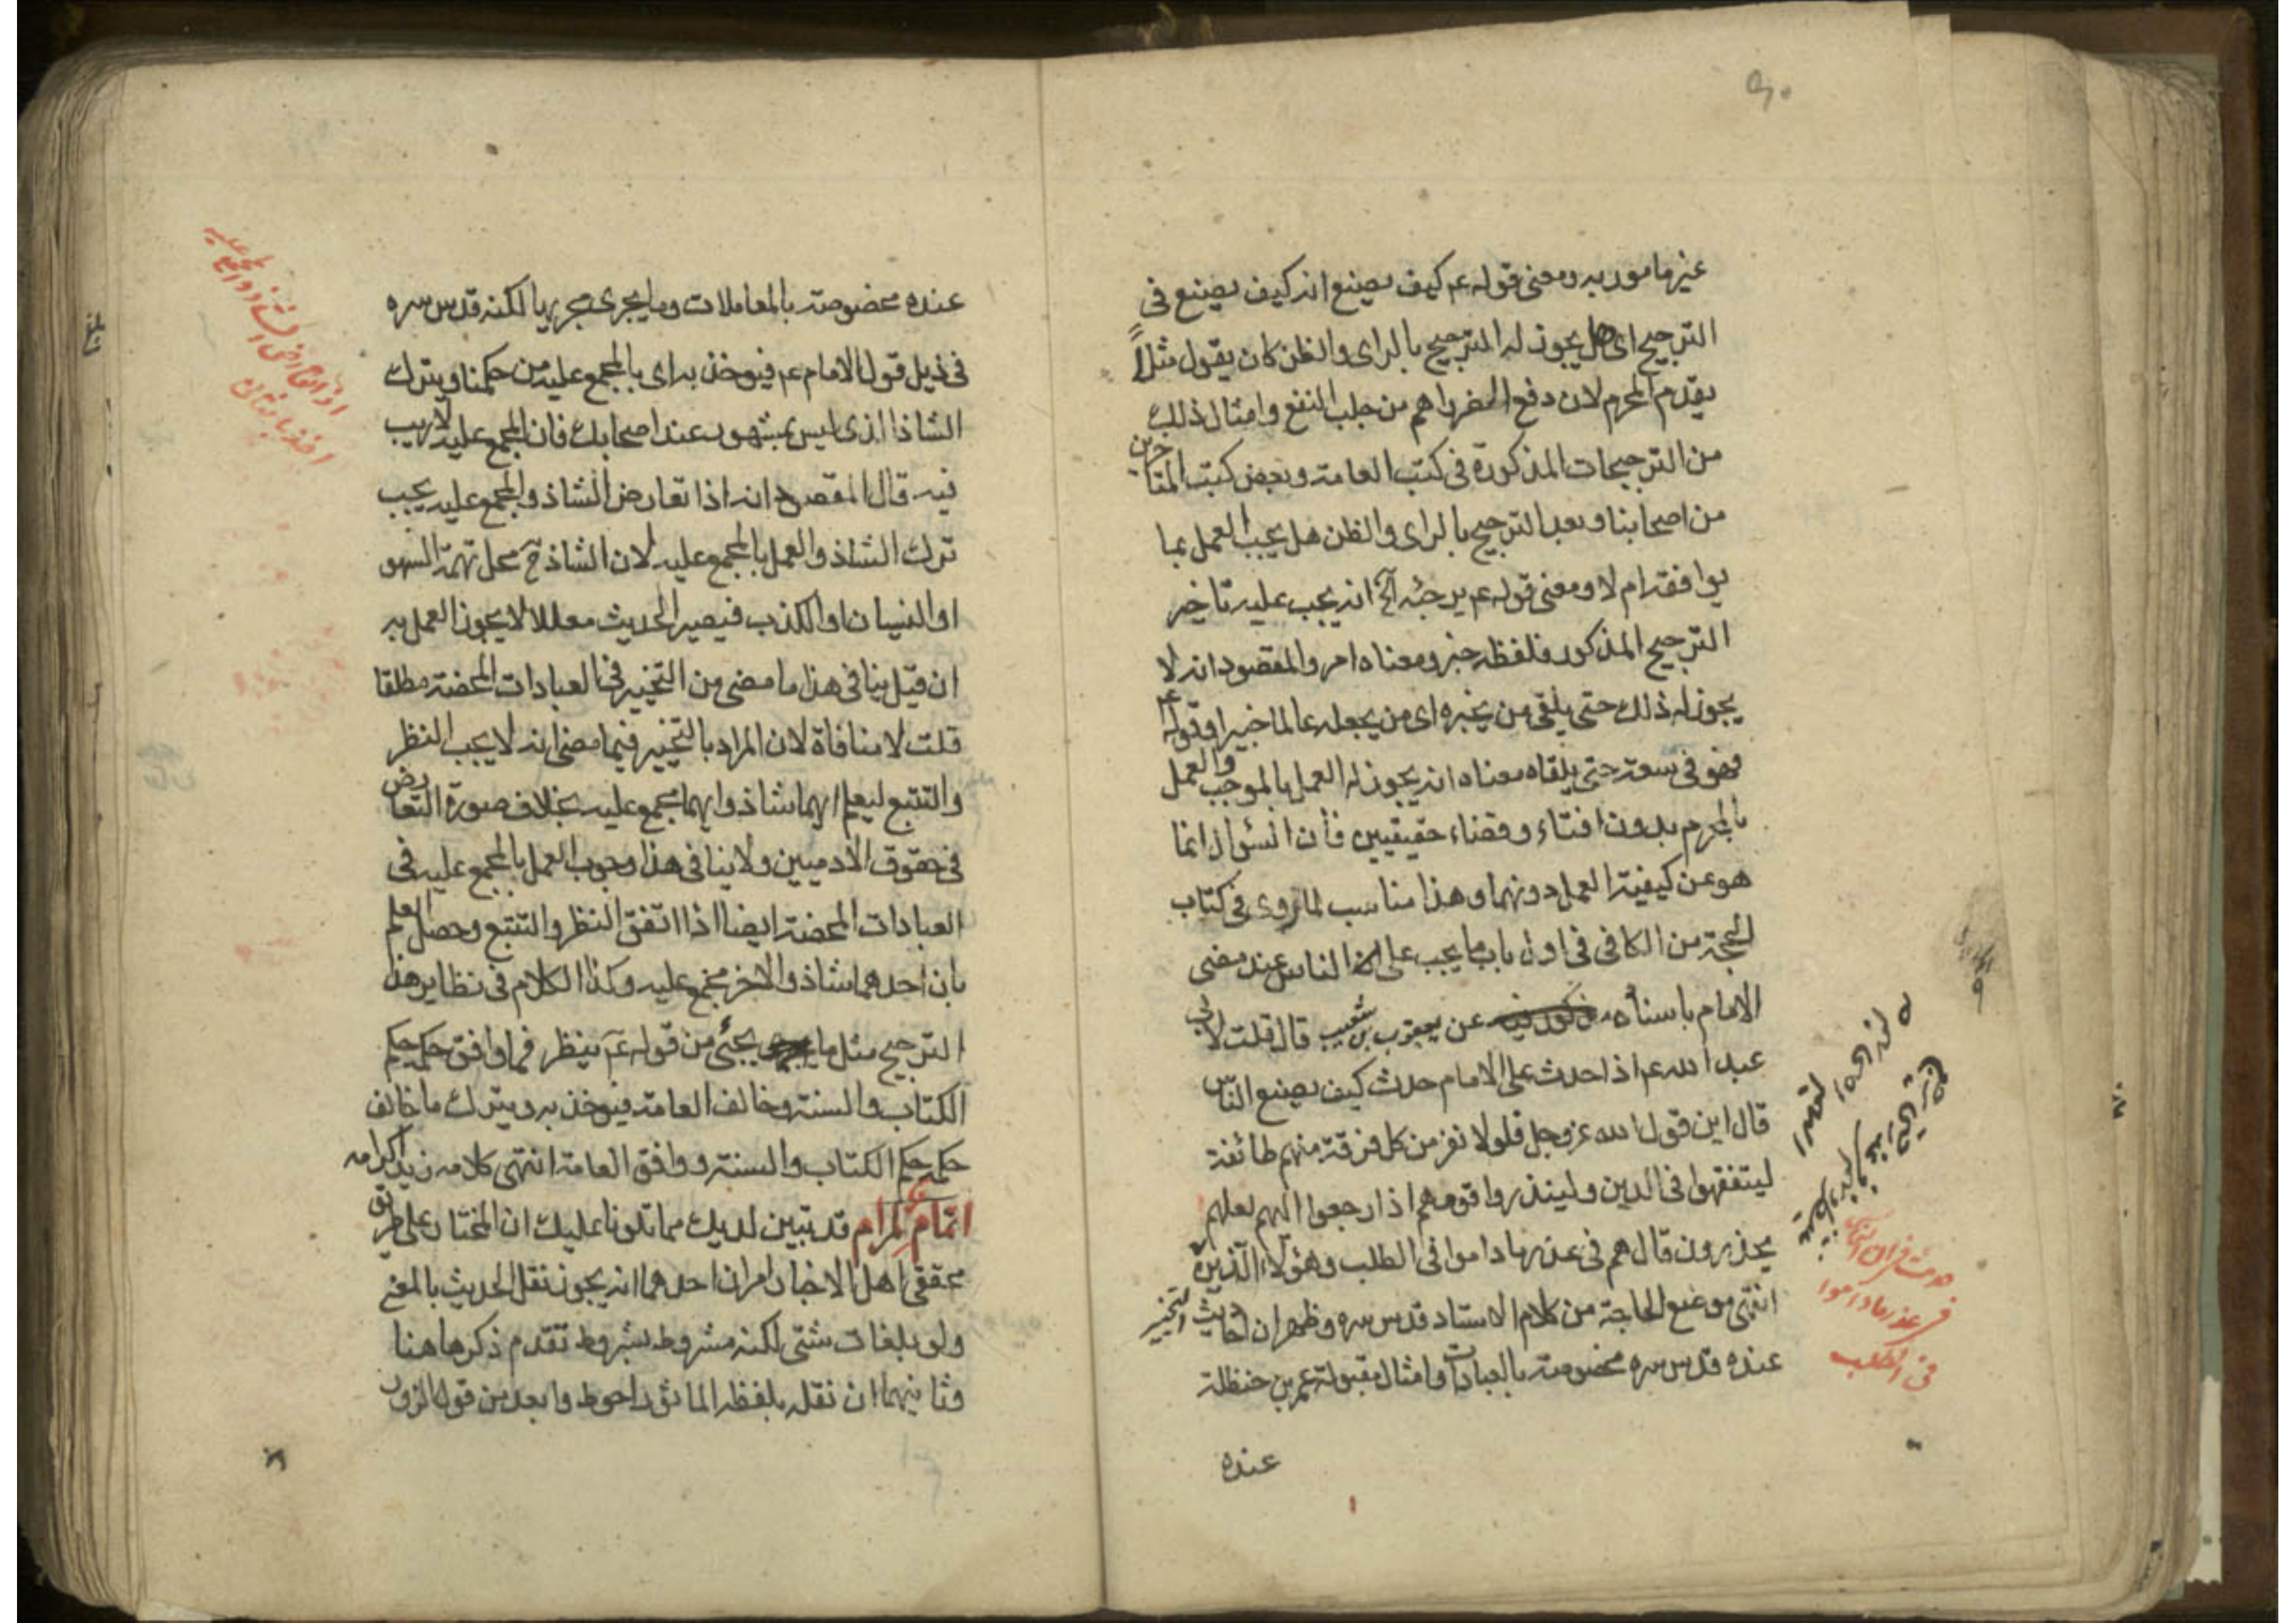 غير مامور به ومعنى قوله عم كيف يصنع انه كيف يصنع فى
الترجيح اى هل يجوز له الترجيح بالراى والظن كان يقول مثلاً
يقدم المحرم لان دفع الضرر اهم من جلب النفع وامثال ذلك
من الترجيحات المذكورة فى كتب العامة وبعض كتب المتاخرين
من اصحابنا وبعد الترجيح بالراى والظن هل يجب العمل بما
يوافقه ام لا ومعنى قوله عم يرجئه آلخ انه يجب عليه تاخير
الترجيح المذكور فلفظه خبر ومعناه امر والمقصود انه لا
يجوز له ذلك حتى يلقى من يخبره اى من يجعله عالما خبيرا وقوله عم
فهو فى سعة حتى يلقاه معناه انه يجوز له العمل بالموجب والعمل
بالمحرم بدون افتاء وقضاء حقيقيين فان السؤال انما
هو عن كيفية العمل دونهما وهذا مناسب لما روى فى كتاب
الحجة من الكافى فى اول باب ما يجب على الناس عند مضى
الامام باسناده عن يعقوب بن شعيب قال قلت لابى
عبد الله عم اذا حدث على الامام حدث كيف يصنع الناس
قال اين قول الله عز وجل فلولا نفر من كل فرقة منهم طائفة
ليتفقهوا فى الدين ولينذروا قومهم اذا رجعوا اليهم لعلهم
يحذرون قال هم فى عذر ما داموا فى الطلب وهؤلاء الذين
انتهى موضع الحاجة من كلام الاستاد قدس سره وظهر ان احاديث التخيير
عنده قدس سره مخصوصة بالعبادات وامثال مقبولة عمر بن حنظلة
عنده
فى عذر ما داموا
فى الطلب
عنده مخصوصة بالمعاملات وما يجرى مجريها لكنه قدس سره
فى ذيل قول الامام عم فيوخذ به اى بالمجمع عليه من حكمنا ويترك
الشاذ الذى ليس بمشهور عند اصحابك فان المجمع عليه لاريب
فيه قال المقصود انه اذا تعارض الشاذ والمجمع عليه يجب
ترك الشاذ والعمل بالمجمع عليه لان الشاذ ح محل تهمة السهو
او النسيان او الكذب فيصير الحديث معللا لا يجوز العمل به
ان قيل ينافى هذا ما مضى من التخيير فى العبادات المحضة مطلقا
قلت لا منافاة لان المراد بالتخيير فيما مضى انه لا يجب النظر
والتتبع ليعلم ايهما شاذ وايهما مجمع عليه بخلاف صورة التعارض
فى حقوق الادميين ولا ينافى هذا وجوب العمل بالمجمع عليه فى
العبادات المحضة ايضا اذا اتفق النظر والتتبع وحصل العلم
بان احدهما شاذ والاخر مجمع عليه وكذا الكلام فى نظاير هذا
الترجيح مثل ما يجئ من قوله عم ينظر فما وافق حكمه حكم
الكتاب والسنة وخالف العامة فيوخذ به ويترك ما خالف
حكمه حكم الكتاب والسنة ووافق العامة انتهى كلامه زيد اكرامه
اتمام لمرام قد تبين لديك مما تلونا عليك ان المختار على طريق
محققى اهل الاخبار امران احدهما انه يجوز نقل الحديث بالمعنى
ولو بلغات شتى لكنه مشروط بشروط تقدم ذكرها هنا
وثانيهما ان نقله بلفظه الماثور احوط وابعد من قول الزور
اذا تعارض الشاذ والمجمع عليه